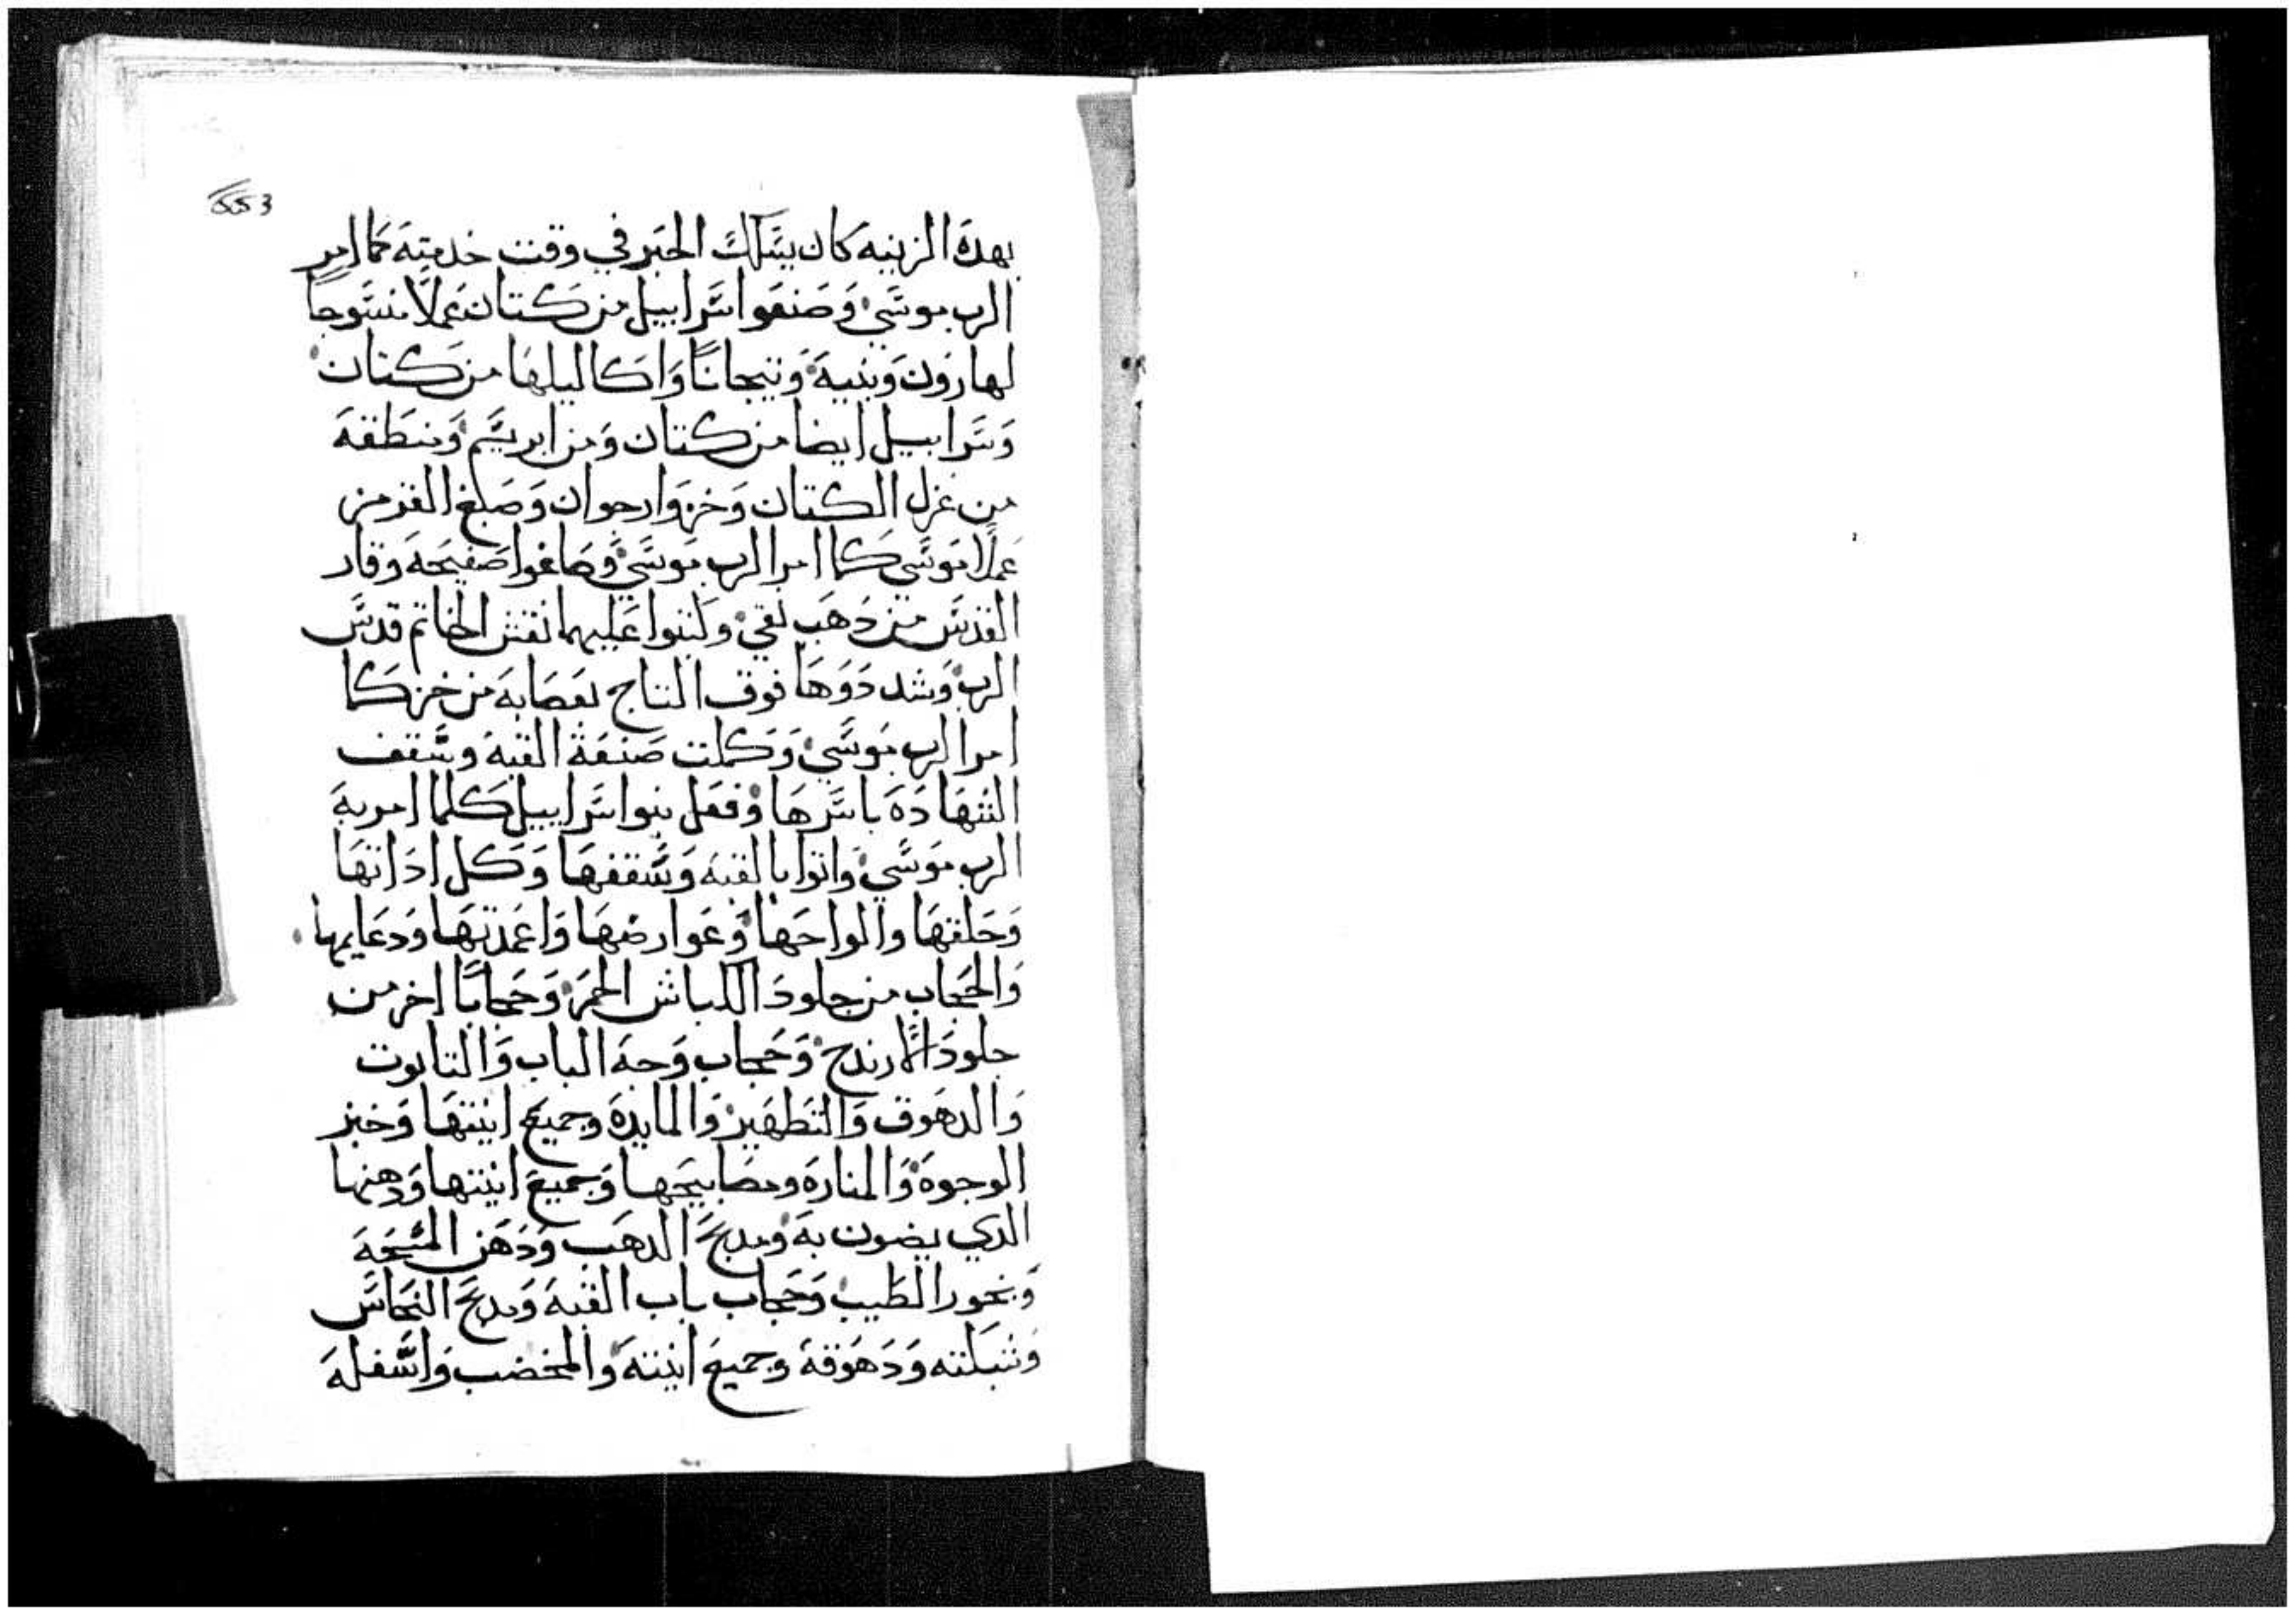 بهده الزينه كان يسلك الحبر في وقت خدمته كما امر
الرب موسي وصنعوا سرابيل من كتان عملا منسوجا
لهارون وبنيه وتيجانا واكاليلها من كتان
وسرابيل ايضا من كتان ومن ابريسم ومنطقه
من غزل الكتان وخز وارجوان وصبغ القرمز
عملا موشي كما امر الرب موسي وصاغوا صفيحه وقار
القدس من دهب نقي وكتبوا عليها نقش الخاتم قدس
الرب وشددوها فوق التاج بعصابه من خز كما
امر الرب موسي وكملت صنعة القبه وسقف
الشهاده باسرها وفعل بنوا سراييل كلما امر به
الرب موسي واتوا بالقبه وسقفها وكل اداتها
وحلقها والواحها وعوارضها واعمدتها ودعايمها
والحجاب من جلود الكباش الحمر وحجابا اخر من
جلود الارندج وحجاب وجه الباب والتابوت
والدهوق والتطهير والمايده وجميع انيتها وخبز
الوجوه والمناره ومصابيحها وجميع انيتها ودهنها
الدي يضون به ومدبح الدهب ودهن المسحه
وبخور الطيب وحجاب باب القبه ومدبح النحاس
وشبكته ودهوقه وجميع انيته والمخضب واسفله